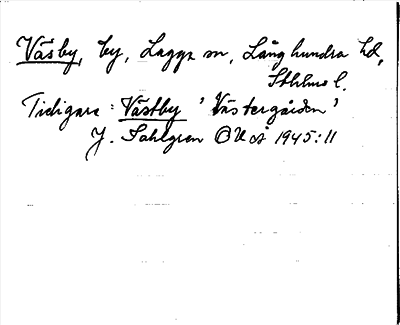 Väsby, by, Lagga sn, Långhundra hd,
Sthlms l.
Tidigare: Västby 'Västergården'
J. Sahlgren OUÅ 1945:11